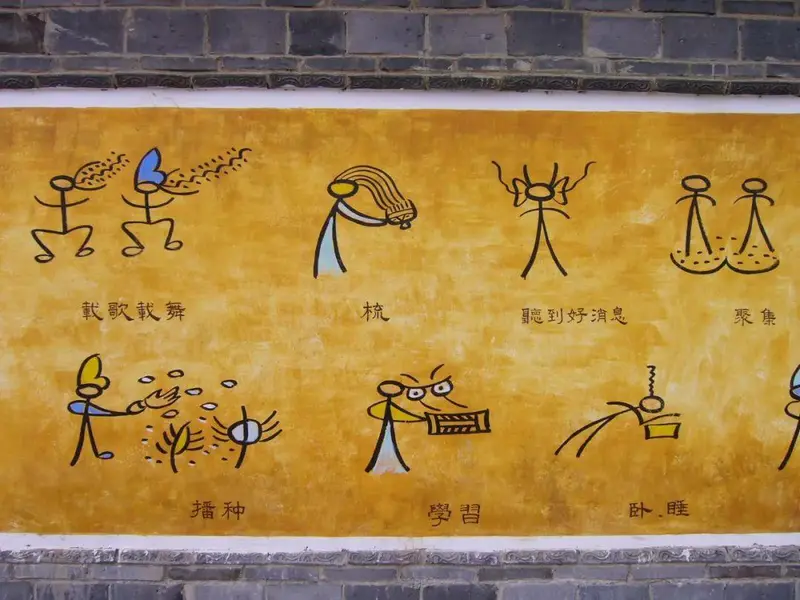 載歌載舞 梳 聽到好消息 聚集
播种 學習 卧.睡